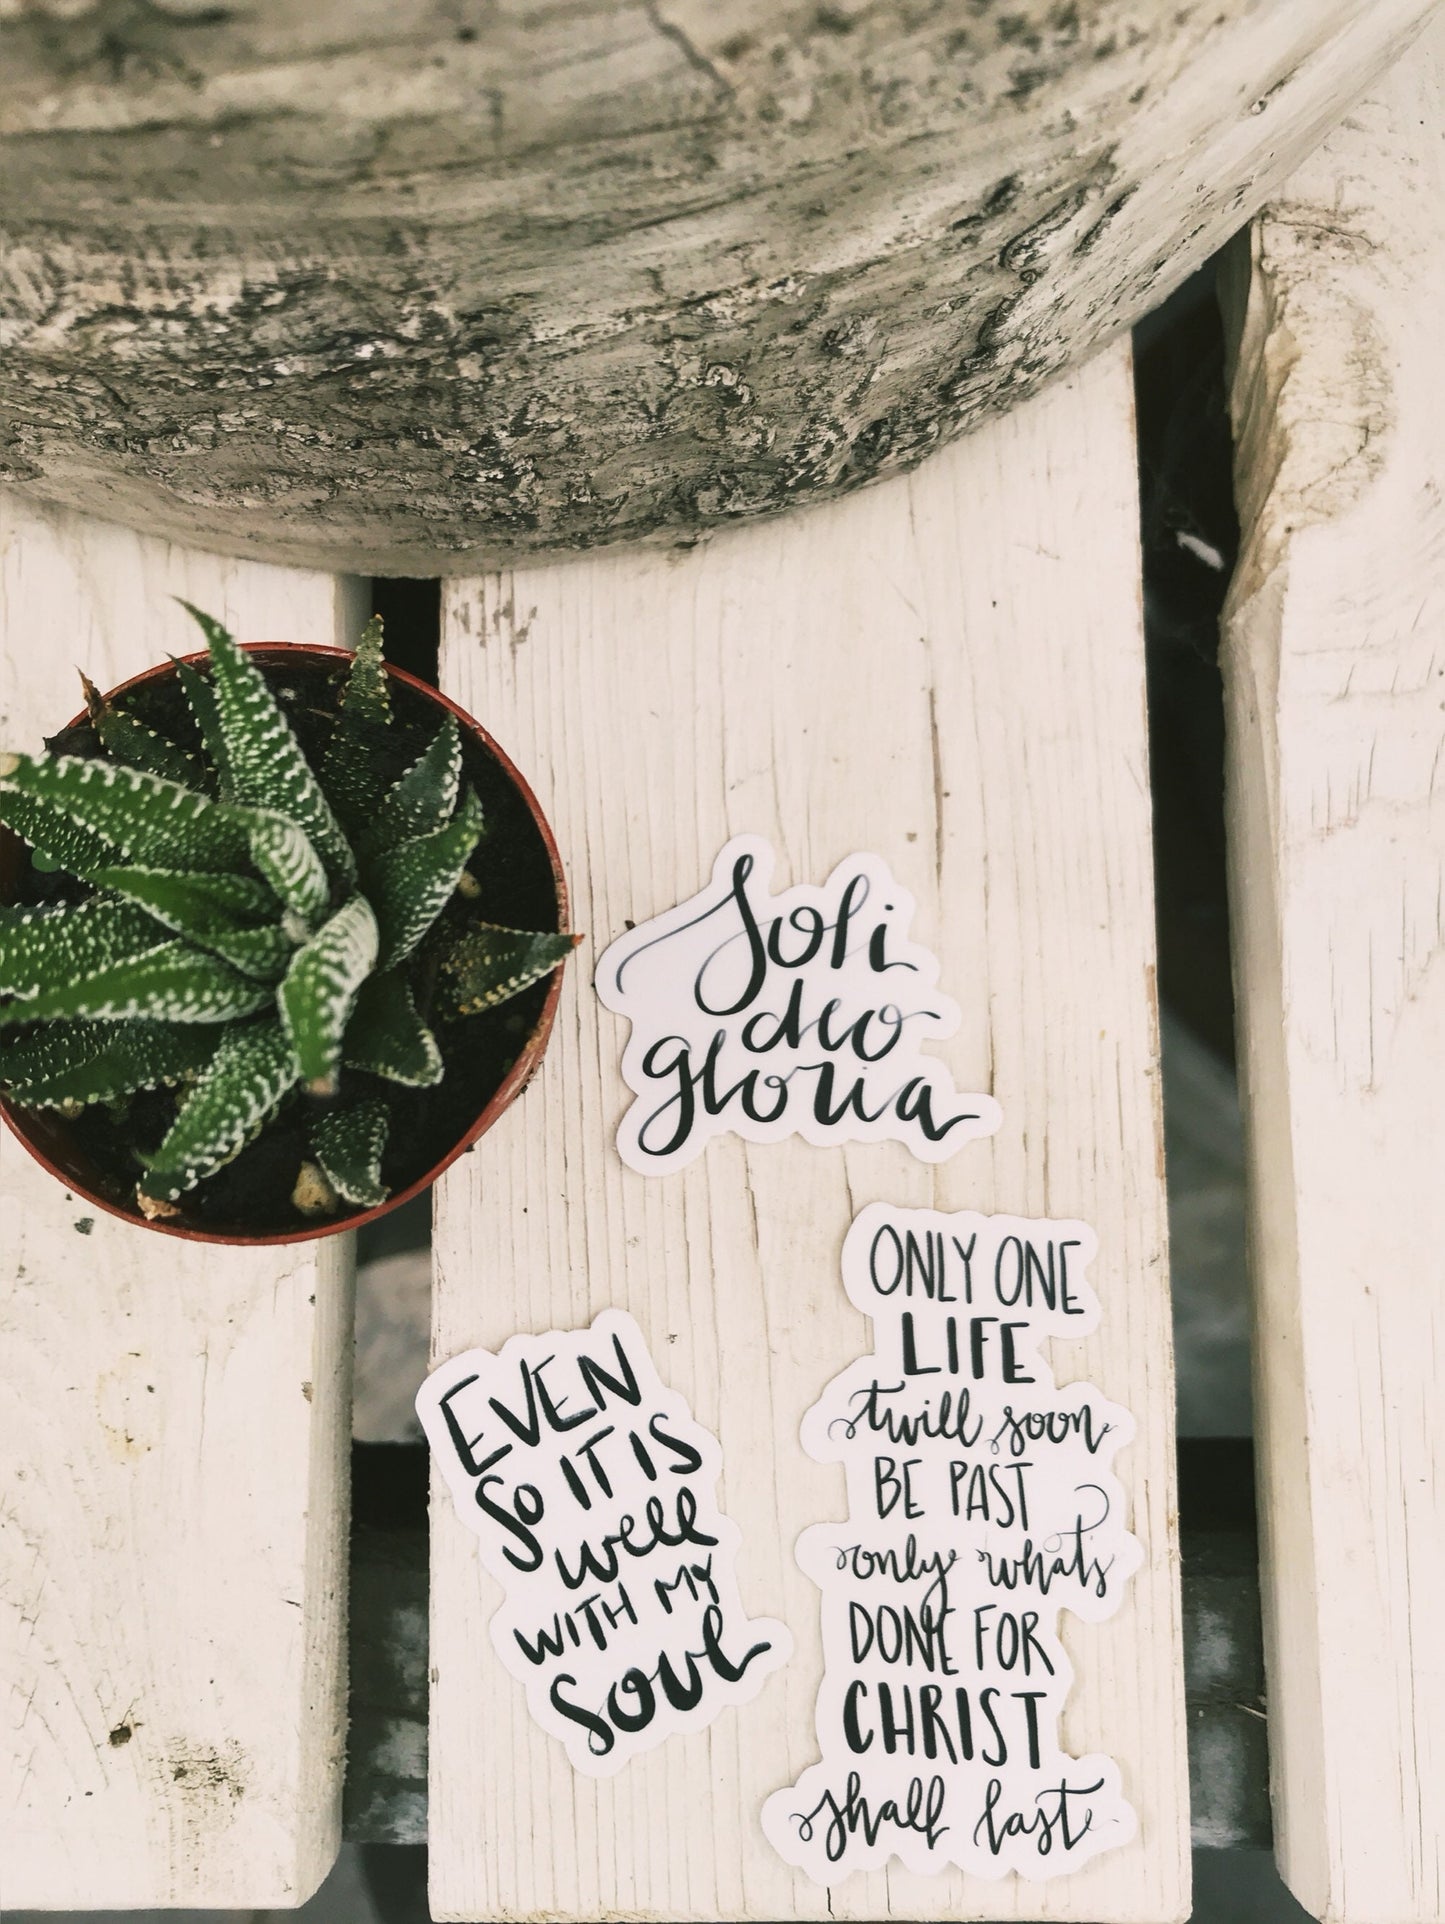 Soli
deo
gloria
ONLY ONE
LIFE
twill soon
BE PAST
only what's
DONE FOR
CHRIST
shall last
EVEN
SO IT IS
well
WITH MY
SOUL